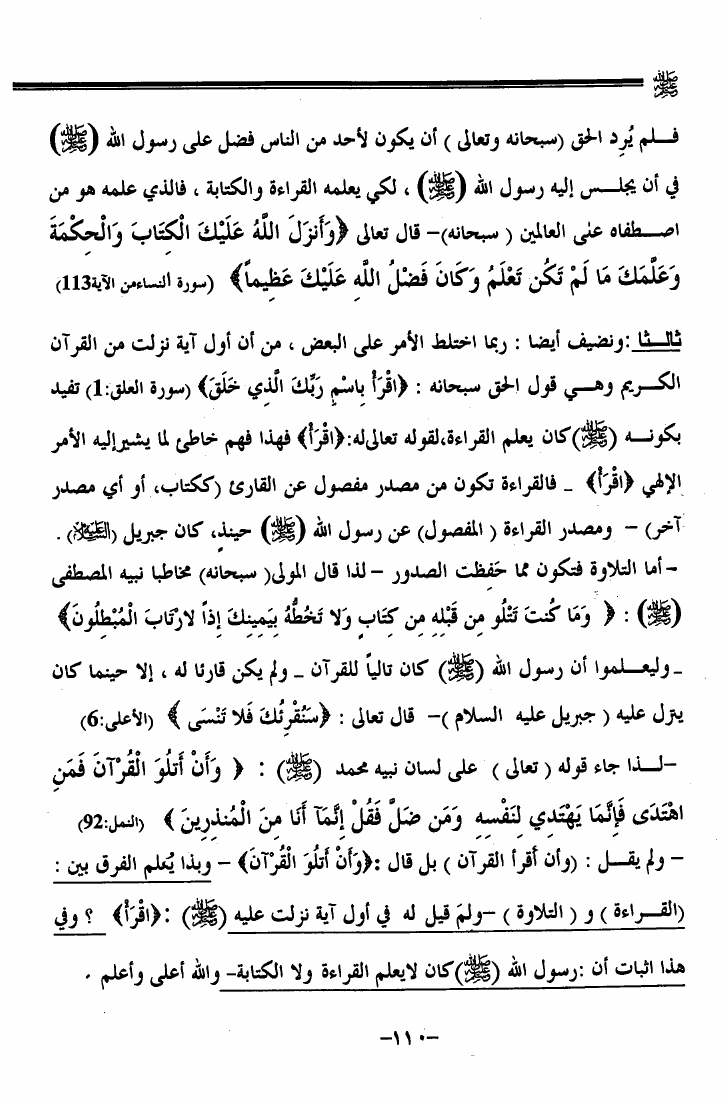 ﷺ
فلم يُرِد الحق (سبحانه وتعالى ) أن يكون لأحد من الناس فضل على رسول الله (ﷺ)
في أن يجلس إليه رسول الله (ﷺ) ، لكي يعلمه القراءة والكتابة ، فالذي علمه هو من
اصطفاه على العالمين ( سبحانه)– قال تعالى ﴿وَأَنزَلَ اللَّهُ عَلَيْكَ الْكِتَابَ وَالْحِكْمَةَ
وَعَلَّمَكَ مَا لَمْ تَكُن تَعْلَمُ وَكَانَ فَضْلُ اللَّهِ عَلَيْكَ عَظِيماً﴾ (سورة النساءمن الآية113)
ثالثا :ونضيف أيضا : ربما اختلط الأمر على البعض ، من أن أول آية نزلت من القرآن
الكريم وهي قول الحق سبحانه : ﴿اقْرَأْ بِاسْمِ رَبِّكَ الَّذِي خَلَقَ﴾ (سورة العلق:1) تفيد
بكونه (ﷺ)كان يعلم القراءة،لقوله تعالى له:﴿اقْرَأْ﴾ فهذا فهم خاطئ لما يشير إليه الأمر
الإلهي ﴿اقْرَأْ﴾ _ فالقراءة تكون من مصدر مفصول عن القارئ (ككتاب، أو أي مصدر
آخر) – ومصدر القراءة ( المفصول) عن رسول الله (ﷺ) حينئذٍ، كان جبريل (العليه السلام) .
–أما التلاوة فتكون مما حَفِظت الصدور –لذا قال المولى( سبحانه) مخاطبا نبيه المصطفى
(ﷺ) : ﴿ وَمَا كُنتَ تَتْلُو مِن قَبْلِهِ مِن كِتَابٍ وَلا تَخُطُّهُ بِيَمِينِكَ إِذاً لارْتَابَ الْمُبْطِلُونَ﴾
_وليعلموا أن رسول الله (ﷺ) كان تالياً للقرآن _ ولم يكن قارئا له ، إلا حينما كان
يتزل عليه ( جبريل عليه السلام )– قال تعالى : ﴿سَنُقْرِئُكَ فَلا تَنْسَى ﴾ (الأعلى:6)
–لذا جاء قوله ( تعالى ) على لسان نبيه محمد (ﷺ) : ﴿ وَأَنْ أَتْلُوَ الْقُرْآنَ فَمَنِ
اهْتَدَى فَإِنَّمَا يَهْتَدِي لِنَفْسِهِ وَمَن ضَلَّ فَقُلْ إِنَّمَآ أَنَا مِنَ الْمُنذِرِينَ ﴾ (النمل:92)
– ولم يقل : (وأن أقرأ القرآن ) بل قال :﴿وَأَنْ أَتْلُوَ الْقُرْآنَ﴾ – وبذا يُعلم الفرق بين :
(القراءة ) و ( التلاوة ) –ولمَ قيل له في أول آية نزلت عليه (ﷺ) :﴿اقْرَأْ﴾ ؟ وفي
هذا اثبات أن :رسول الله (ﷺ)كان لايعلم القراءة ولا الكتابة– والله أعلى وأعلم .
–١١٠–